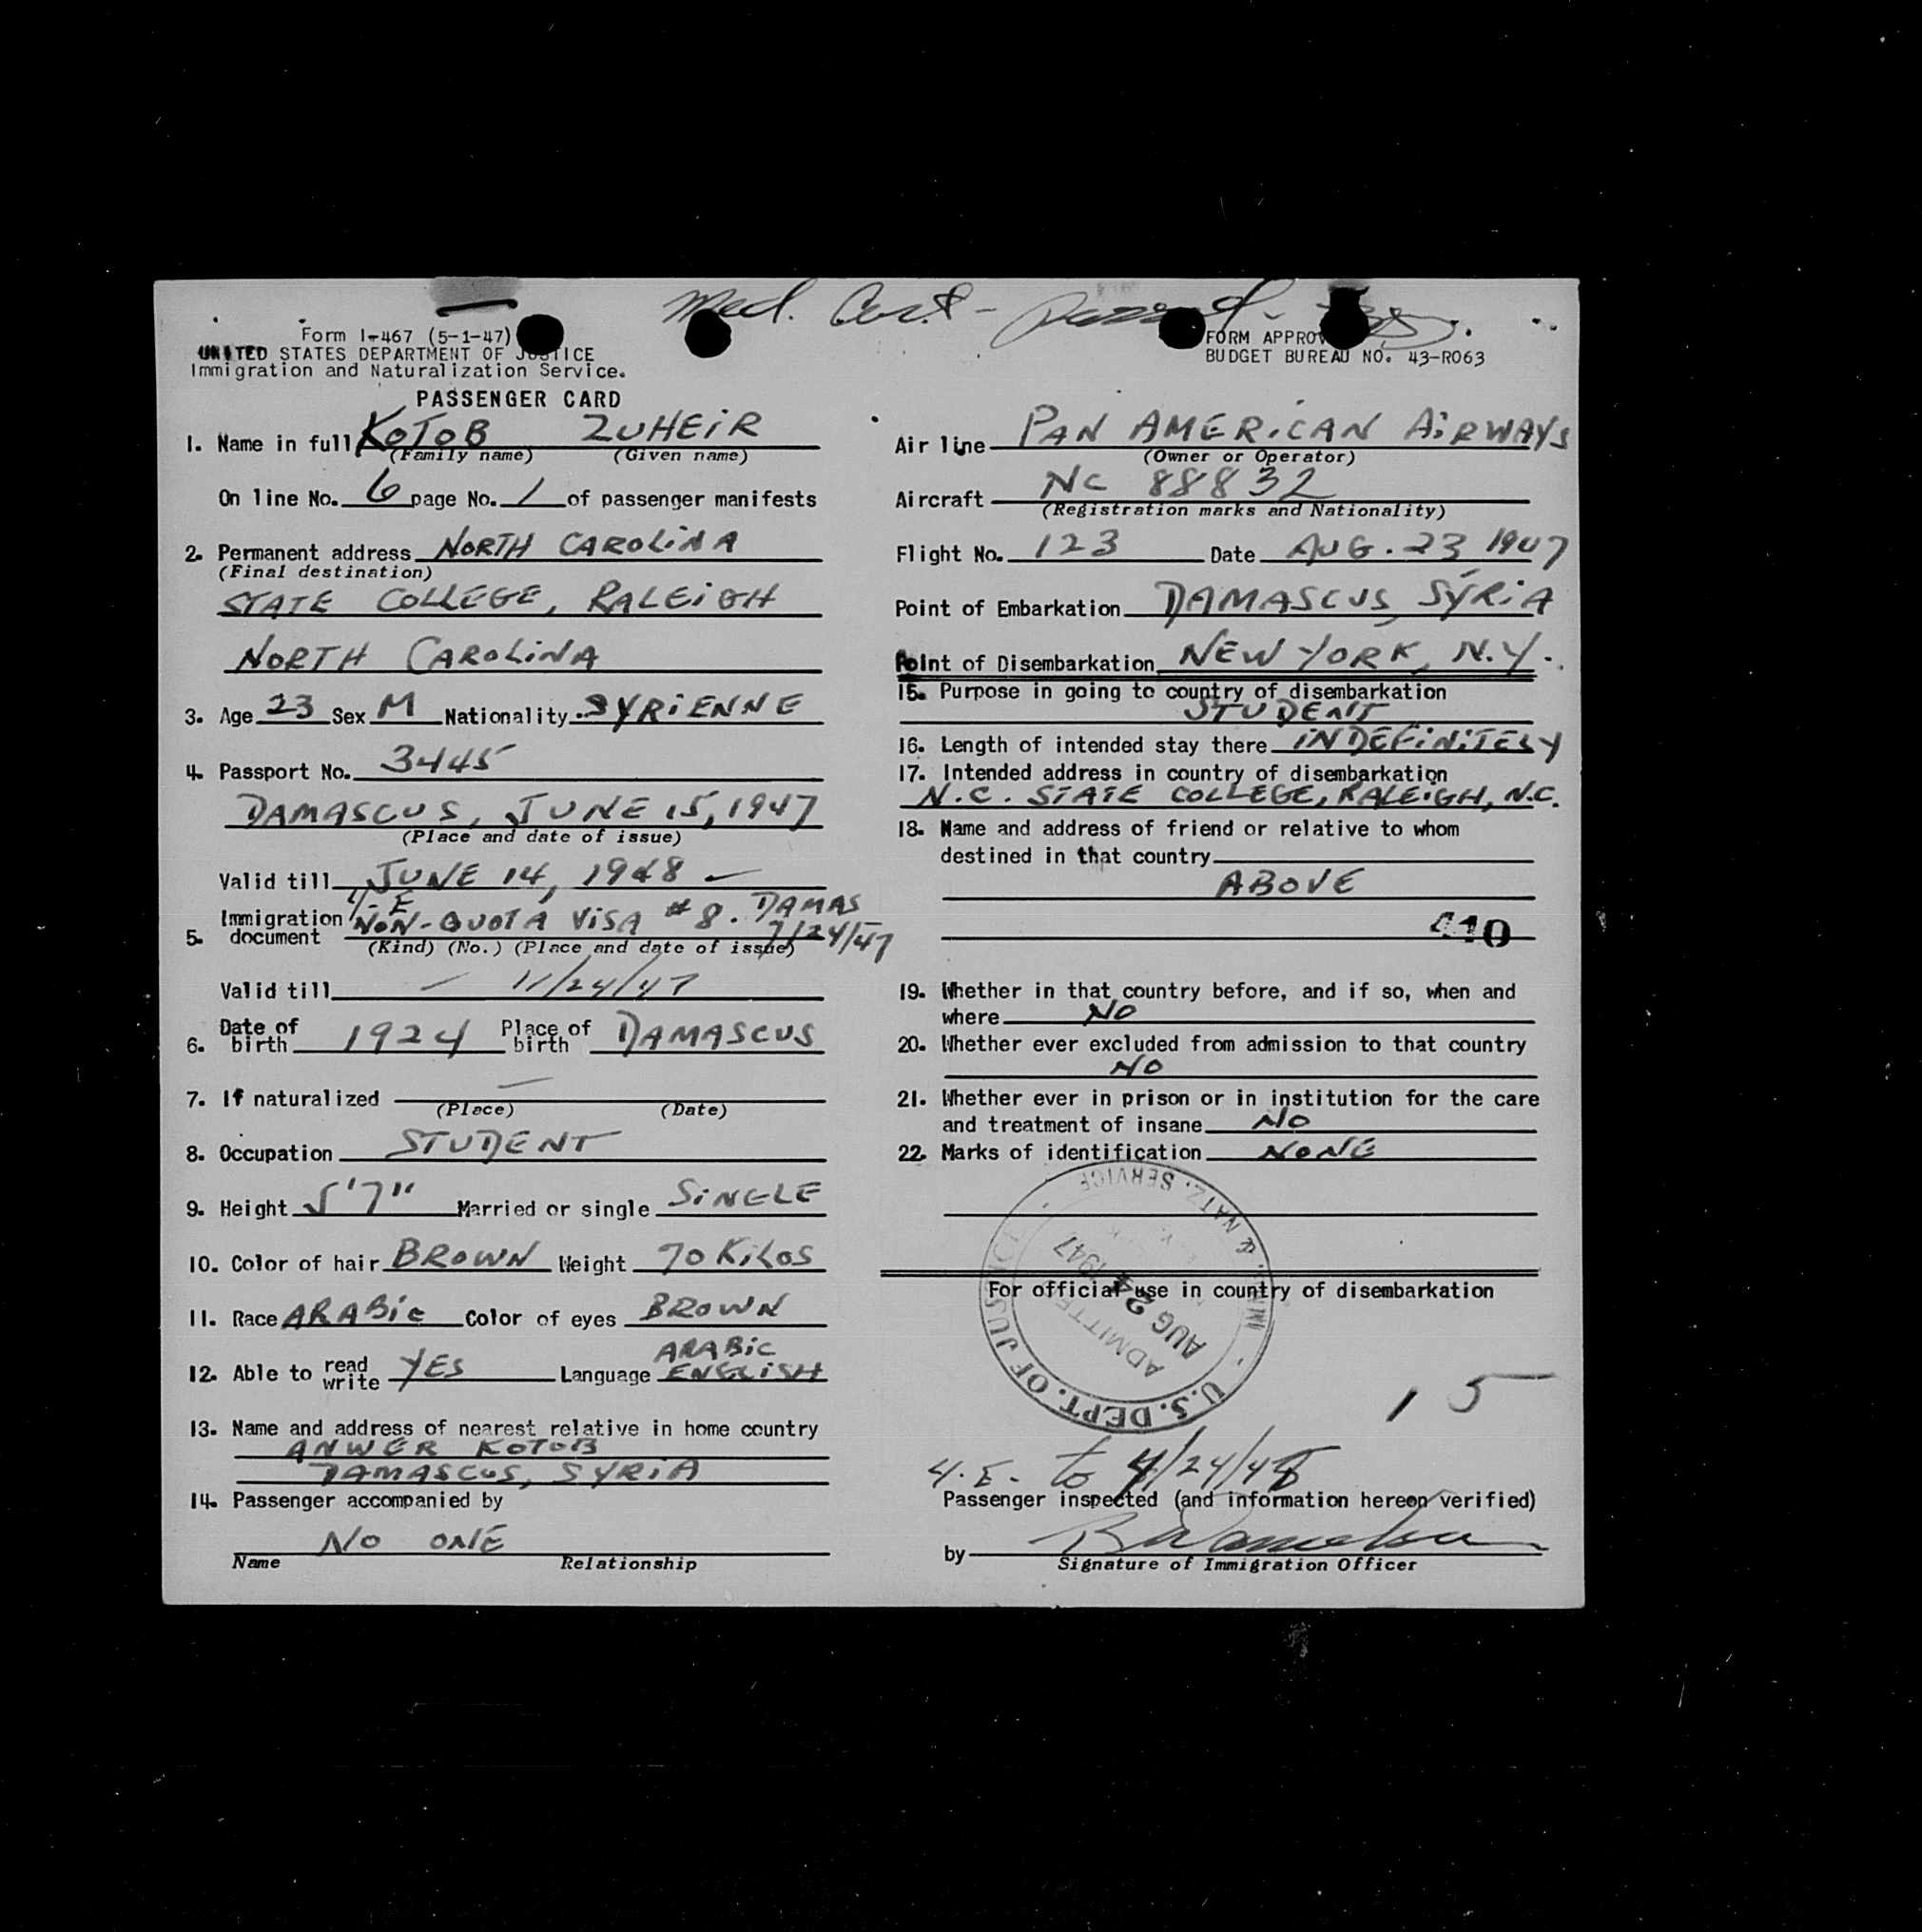 Med. Cert -
Form I-467 (5-1-47)
UNITED STATES DEPARTMENT OF JUSTICE
Immigration and Naturalization Service.
PASSENGER CARD
1. Name in full KOTOB ZUHEiR
(Family name) (Given name)
On line No. 6 page No. 1 of passenger manifests
2. Permanent address NORTH CAROLiNA
(Final destination)
STATE COLLEGE, RALEiGH
NORTH CAROLiNA
3. Age 23 Sex M Nationality SYRiENNE
4. Passport No. 3445
DAMASCUS, JUNE 15, 1947
(Place and date of issue)
Valid till JUNE 14, 1948 -
4-E
5. Immigration document NON-QUOTA ViSA # 8. DAMAS
7/24/47
(Kind) (No.) (Place and date of issue)
Valid till - 11/24/47
6. Date of birth 1924 Place of birth DAMASCUS
7. If naturalized -
(Place) (Date)
8. Occupation STUDENT
9. Height 5'7" Married or single SiNGLE
10. Color of hair BROWN Weight 70 KiLOS
11. Race ARABiC Color of eyes BROWN
12. Able to read write YES Language ARABiC
ENGLiSH
13. Name and address of nearest relative in home country
ANWER KOTOB
DAMASCUS, SYRiA
14. Passenger accompanied by
NO ONE
Name Relationship
FORM APPROV
BUDGET BUREAU NO. 43-R063
Air line PAN AMERiCAN AiRWAYS
(Owner or Operator)
Aircraft NC 88832
(Registration marks and Nationality)
Flight No. 123 Date AUG. 23 1947
Point of Embarkation DAMASCUS, SYRiA
Point of Disembarkation NEW YORK, N.Y.
15. Purpose in going to country of disembarkation
STUDENT
16. Length of intended stay there iNDEFiNiTELY
17. Intended address in country of disembarkation
N.C. STATE COLLEGE, RALEiGH, N.C.
18. Name and address of friend or relative to whom
destined in that country
ABOVE
410
19. Whether in that country before, and if so, when and
where NO
20. Whether ever excluded from admission to that country
NO
21. Whether ever in prison or in institution for the care
and treatment of insane NO
22. Marks of identification NONE
U.S. DEPT. OF JUSTICE
IMM. & NATZ. SERVICE
ADMITTED
AUG 24 1947
For official use in country of disembarkation
1 5
4.E. to 4/24/48
Passenger inspected (and information hereon verified)
by
Signature of Immigration Officer